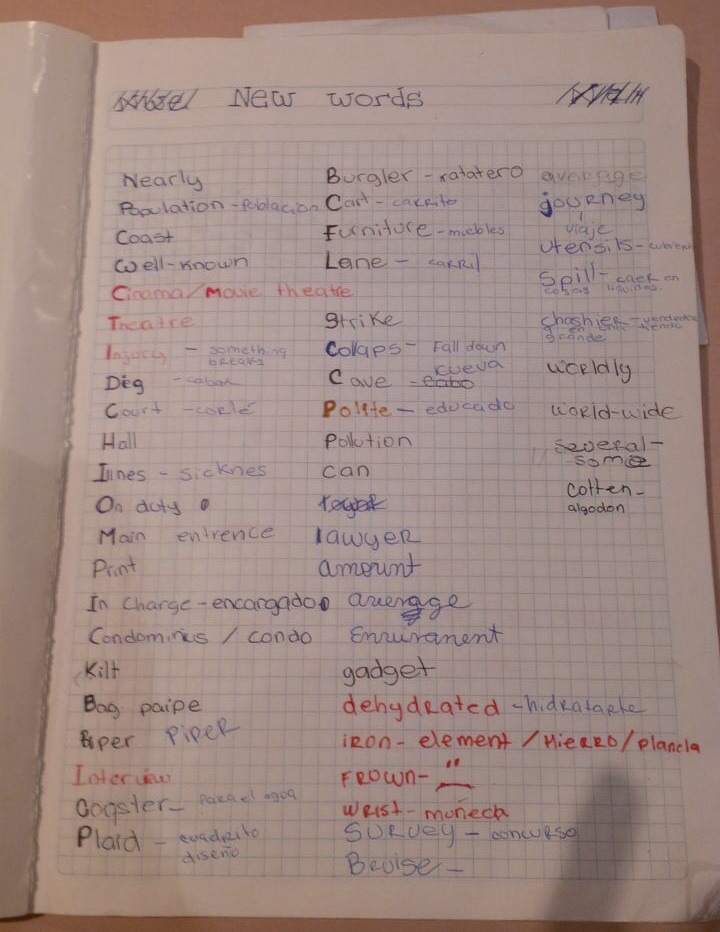 New words
Nearly
Population - Poblacion
Coast
Well-known
Cinama/Movie theatre
Theatre
Injury - something
breaks
Dig - cabar
Court - corte
Hall
Ilnes - sicknes
On duty
Main entrence
Print
In charge - encargado
Condominius / condo
Kilt
Bag paipe
Piper Piper
Interview
Coogster - Para el agua
Plaid - cuadrito
diseño
Burgler - ratatero
Cart - carrito
Furniture - muebles
Lane - carril
Strike
Colaps - Fall down
cueva
Cave -
Polite - educado
Pollution
can
lawyer
amount
average
Enruranent
gadget
dehydrated - hidratarte
iron - element / Hierro / plancla
Frown -
wrist - muñeca
Survey - concurso
Bruise -
average
journey
viaje
utensils -
Spill - caer en
cosas liquidas.
chashier -
en una tienda
grande
worldly
world-wide
several -
some
cotten -
algodon